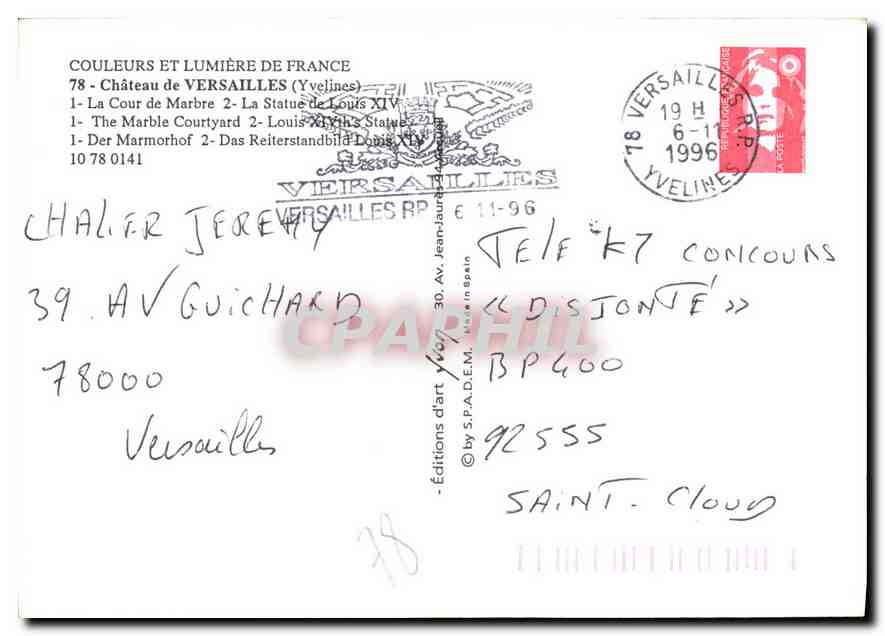 COULEURS ET LUMIÈRE DE FRANCE
78 - Château de VERSAILLES (Yvelines)
1- La Cour de Marbre 2- La Statue de Louis XIV
1- The Marble Courtyard 2- Louis XIVth's Statue
1- Der Marmorhof 2- Das Reiterstandbild Louis XIV
10 78 0141
VERSAILLES
VERSAILLES RP 6 11-96
78 VERSAILLES R.P.
19 H
6-11
1996
YVELINES
REPUBLIQUE FRANÇAISE
LA POSTE
CHALIER JEREMY
39. AV GUICHARD
78000
Versailles
- Éditions d'art yvon 30. Av. Jean-Jaurès-94 Arcueil
© by S.P.A.D.E.M. Made in Spain
TELE K7 CONCOURS
« DISJONTÉ »
BP 400
92555
SAINT-CLOUD
78
CPAPHIL